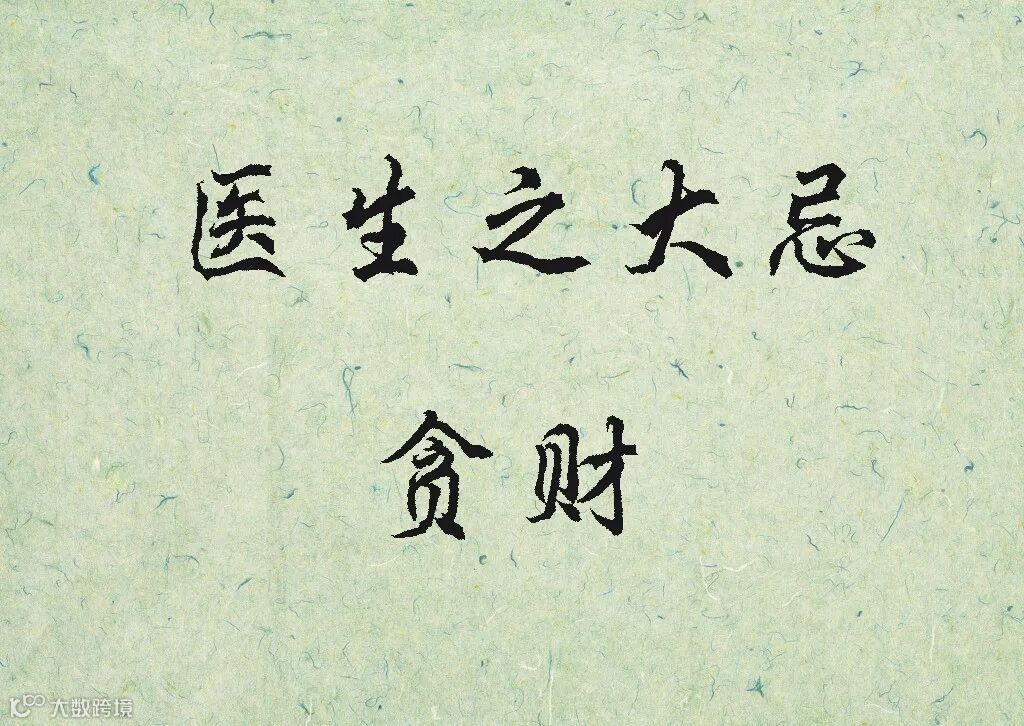 医生之大忌
贪财
大数跨境